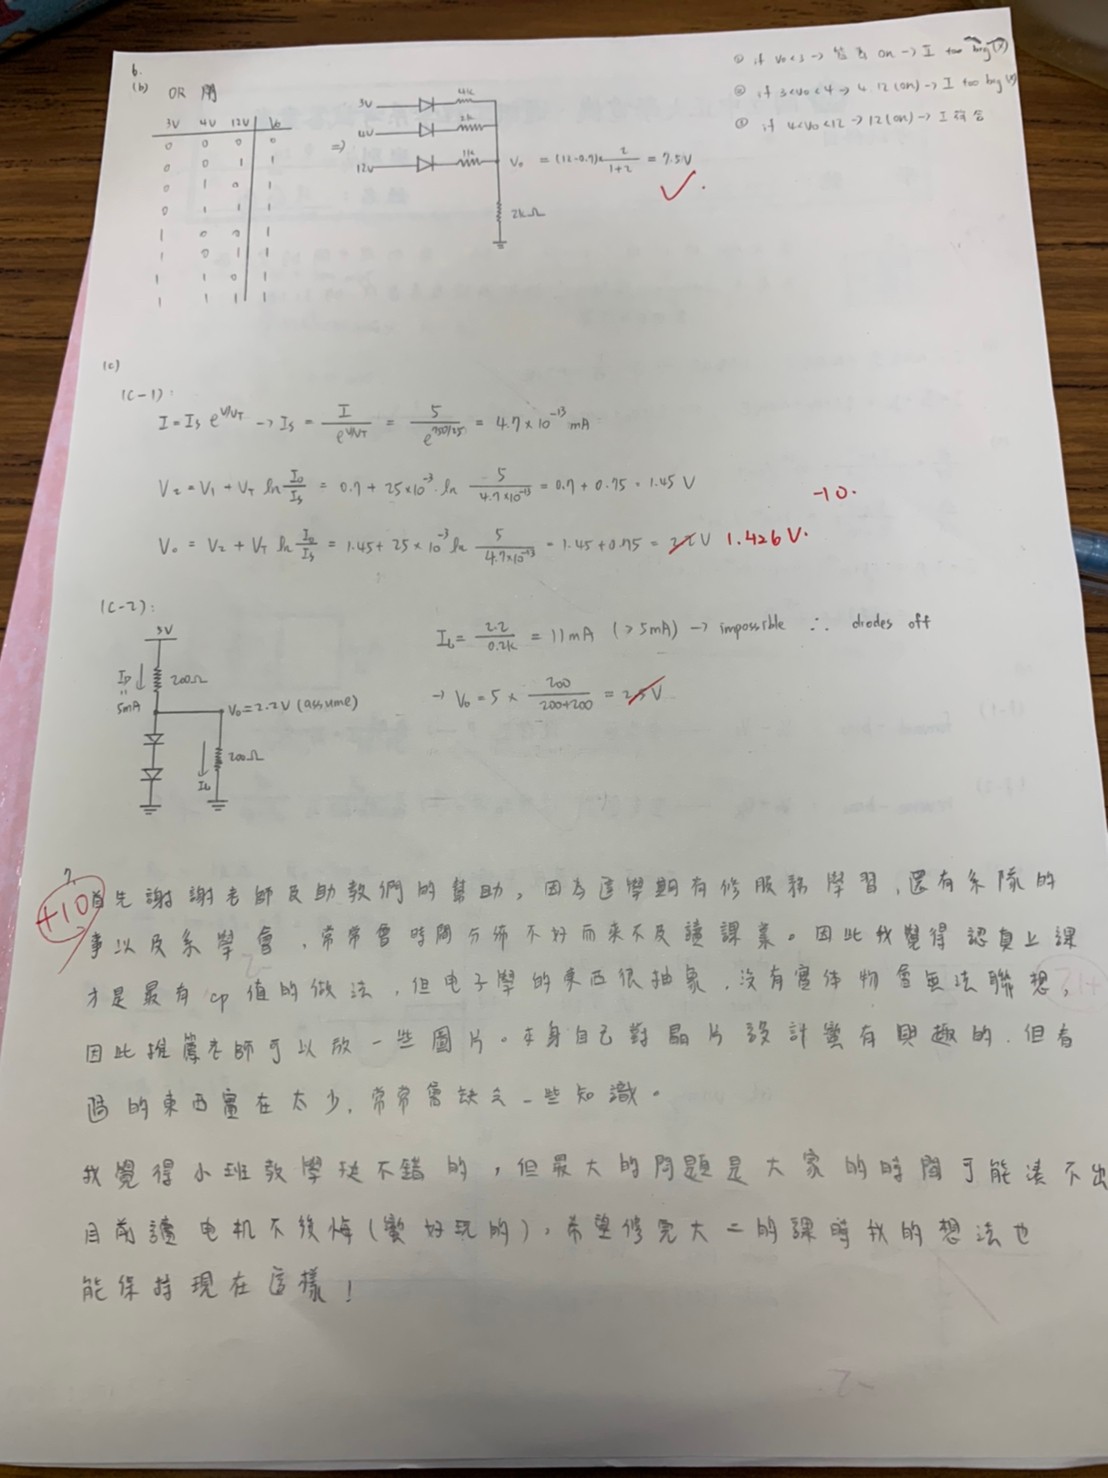 6.
(b) OR 閘
3V 4V 12V Vo
0 0 0 0
0 0 1 1
0 1 0 1
0 1 1 1
1 0 0 1
1 0 1 1
1 1 0 1
1 1 1 1
⇒
3V 4k
4V 3k
12V 1k
Vo = (12-0.7)× 2/(1+2) = 7.5V
2kΩ
① if Vo<3 → 皆為 on → I too big (x)
② if 3<Vo<4 → 4.12 (on) → I too big (x)
③ if 4<Vo<12 → 12 (on) → I 符合
(c)
(c-1):
I = Is e^(V/VT) → Is = I/e^(V/VT) = 5/e^(750/25) = 4.7×10^-13 mA
V2 = V1 + VT ln Io/Is = 0.7 + 25×10^-3 · ln 5/(4.7×10^-13) = 0.7 + 0.75 = 1.45 V
-10.
Vo = V2 + VT ln Io/Is = 1.45 + 25×10^-3 ln 5/(4.7×10^-13) = 1.45 + 0.75 = 2.2 V 1.426 V.
(c-2):
ID ↓ 200Ω
5mA
Vo = 2.2V (assume)
200Ω
IL
IL = 2.2/0.2k = 11mA (>5mA) → impossible ∴ diodes off
→ Vo = 5 × 200/(200+200) = 2.5V
7.
+10
首先謝謝老師及助教們的幫助，因為這學期有修服務學習，還有系隊的
事以及系學會，常常會時間分佈不好而來不及讀課業。因此我覺得認真上課
才是最有cp值的做法，但电子學的東西很抽象，沒有實体物會無法聯想，
因此推薦老師可以放一些圖片。本身自己對晶片設計蠻有興趣的，但看
過的東西實在太少，常常會缺乏一些知識。
我覺得小班教學挺不錯的，但最大的問題是大家的時間可能湊不出
目前讀电机不後悔(蠻好玩的)，希望修完大二的課時我的想法也
能保持現在這樣！